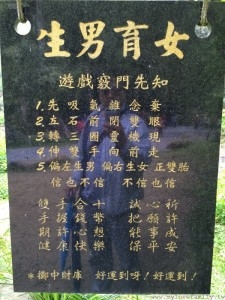 生男育女
遊戲竅門先知
1.先吸氣雜念棄
2.左石前閉雙眼
3.轉三圈靈機現
4.伸雙手向前走
5.偏左生男 偏右生女 正雙胎
信也不信 不信也信
雙手合十 誠心祈
手握錢幣 把願許
期許 能事成
健康快樂 保平安
*擲中財庫 好運到呀!好運到!
www.mylovefamily.tw